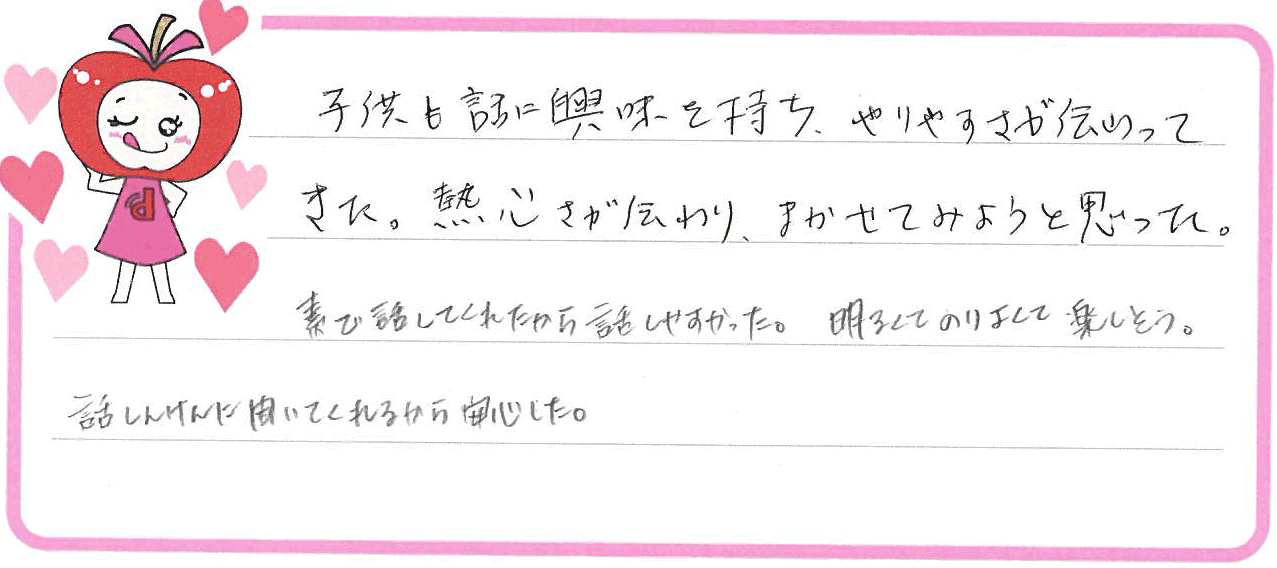 子供も話に興味を持ち、やりやすさが伝わって
きた。熱心さが伝わり、まかせてみようと思った。
素で話してくれたから話しやすかった。 明るくてのりよくて楽しそう。
話しんけんに聞いてくれるから安心した。